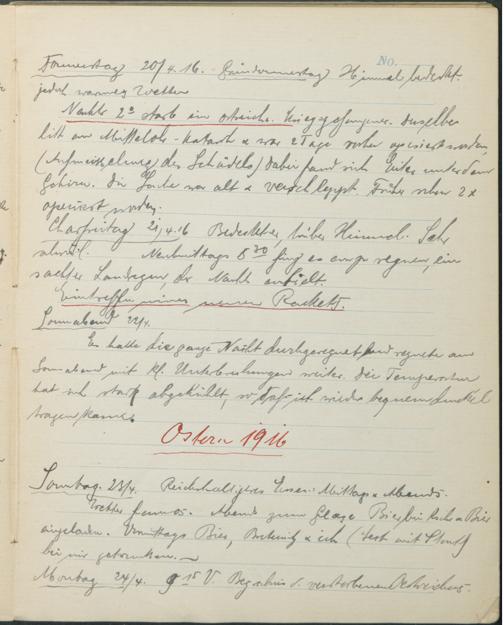 No.
Donnerstag 20/4.16. Gründonnerstag Himmel bedeckt.
jedoch warmes Wetter
Nachts 2 starb ein östreich. Kriegsgefangener. Derselbe
litt an Mittelohr-Katarh u war 2 Tage vorher operiert worden
(Aufmeisselung des Schädels) dabei fand sich Eiter unter dem
Gehirn. Die Sache war alt u verschleppt. Früher schon 2 x
operiert worden.
Charfreitag 21/4.16 Bedeckter, trüber Himmel. Sehr
schwül. Nachmittags 8 30 fing es an zu regnen, ein
sachter Landregen, der Nachts anhielt.
Eintreffen meines neuen Rockets.
Sonnabend 22/4.
Es hatte die ganze Nacht durchgeregnet und regnete am
Sonnabend mit kl. Unterbrechungen weiter. Die Temperatur
hat sich stark abgekühlt, so daß ich wieder bequem
tragen kann.
Ostern 1916
Sonntag. 23/4. Reichhaltiges Essen: Mittags u Abends.
Wetter famos. Abends zum Glase Bier bei u Bier
eingeladen. Vormittags Bier, u ich (
bei mir getrunken.
Montag 24/4. 9 15 V. Begräbnis d. verstorbenen Östreichers.